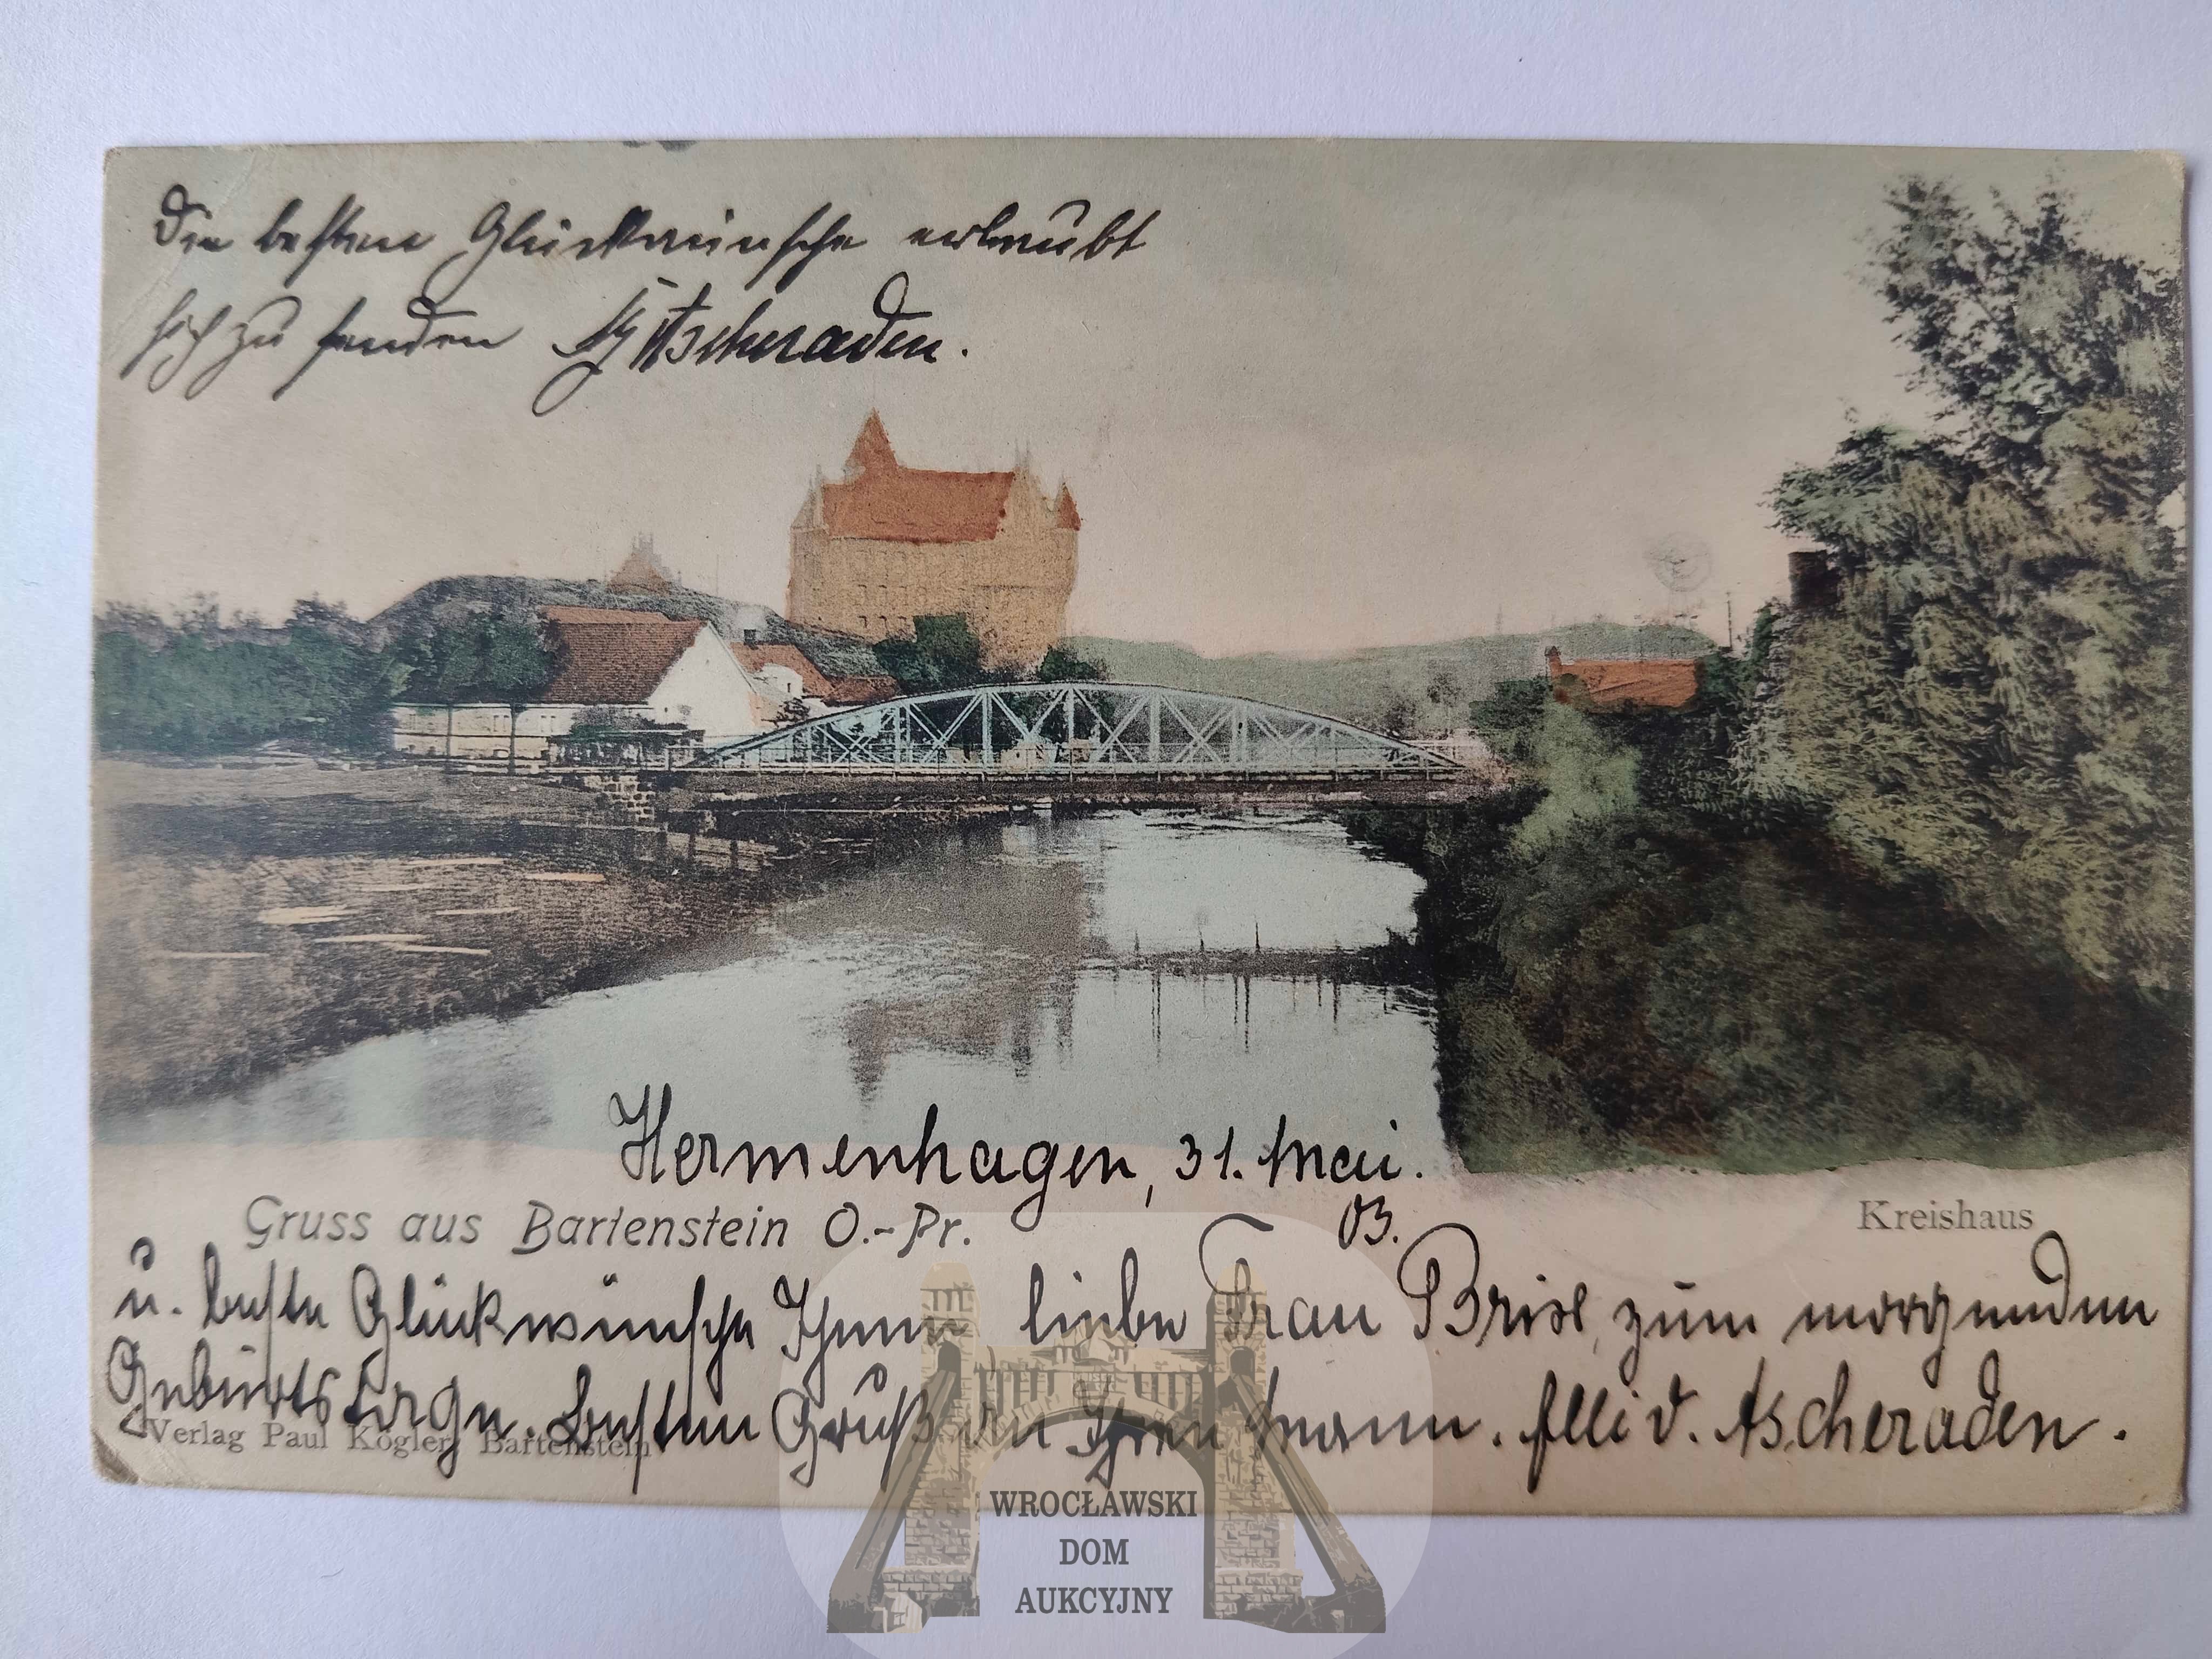 Die besten Glückwünsche erlaubt
sich zu senden Ascheraden.
Hermenhagen, 31. Mai.
03.
Gruss aus Bartenstein O.-Pr.
Kreishaus
u. beste Glückwünsche Ihnen liebe Frau zum morgenden
Geburtstage. Besten Gruß an Ihren Mann. Elli v. Ascheraden.
Verlag Paul Kögler, Bartenstein
WROCŁAWSKI
DOM
AUKCYJNY